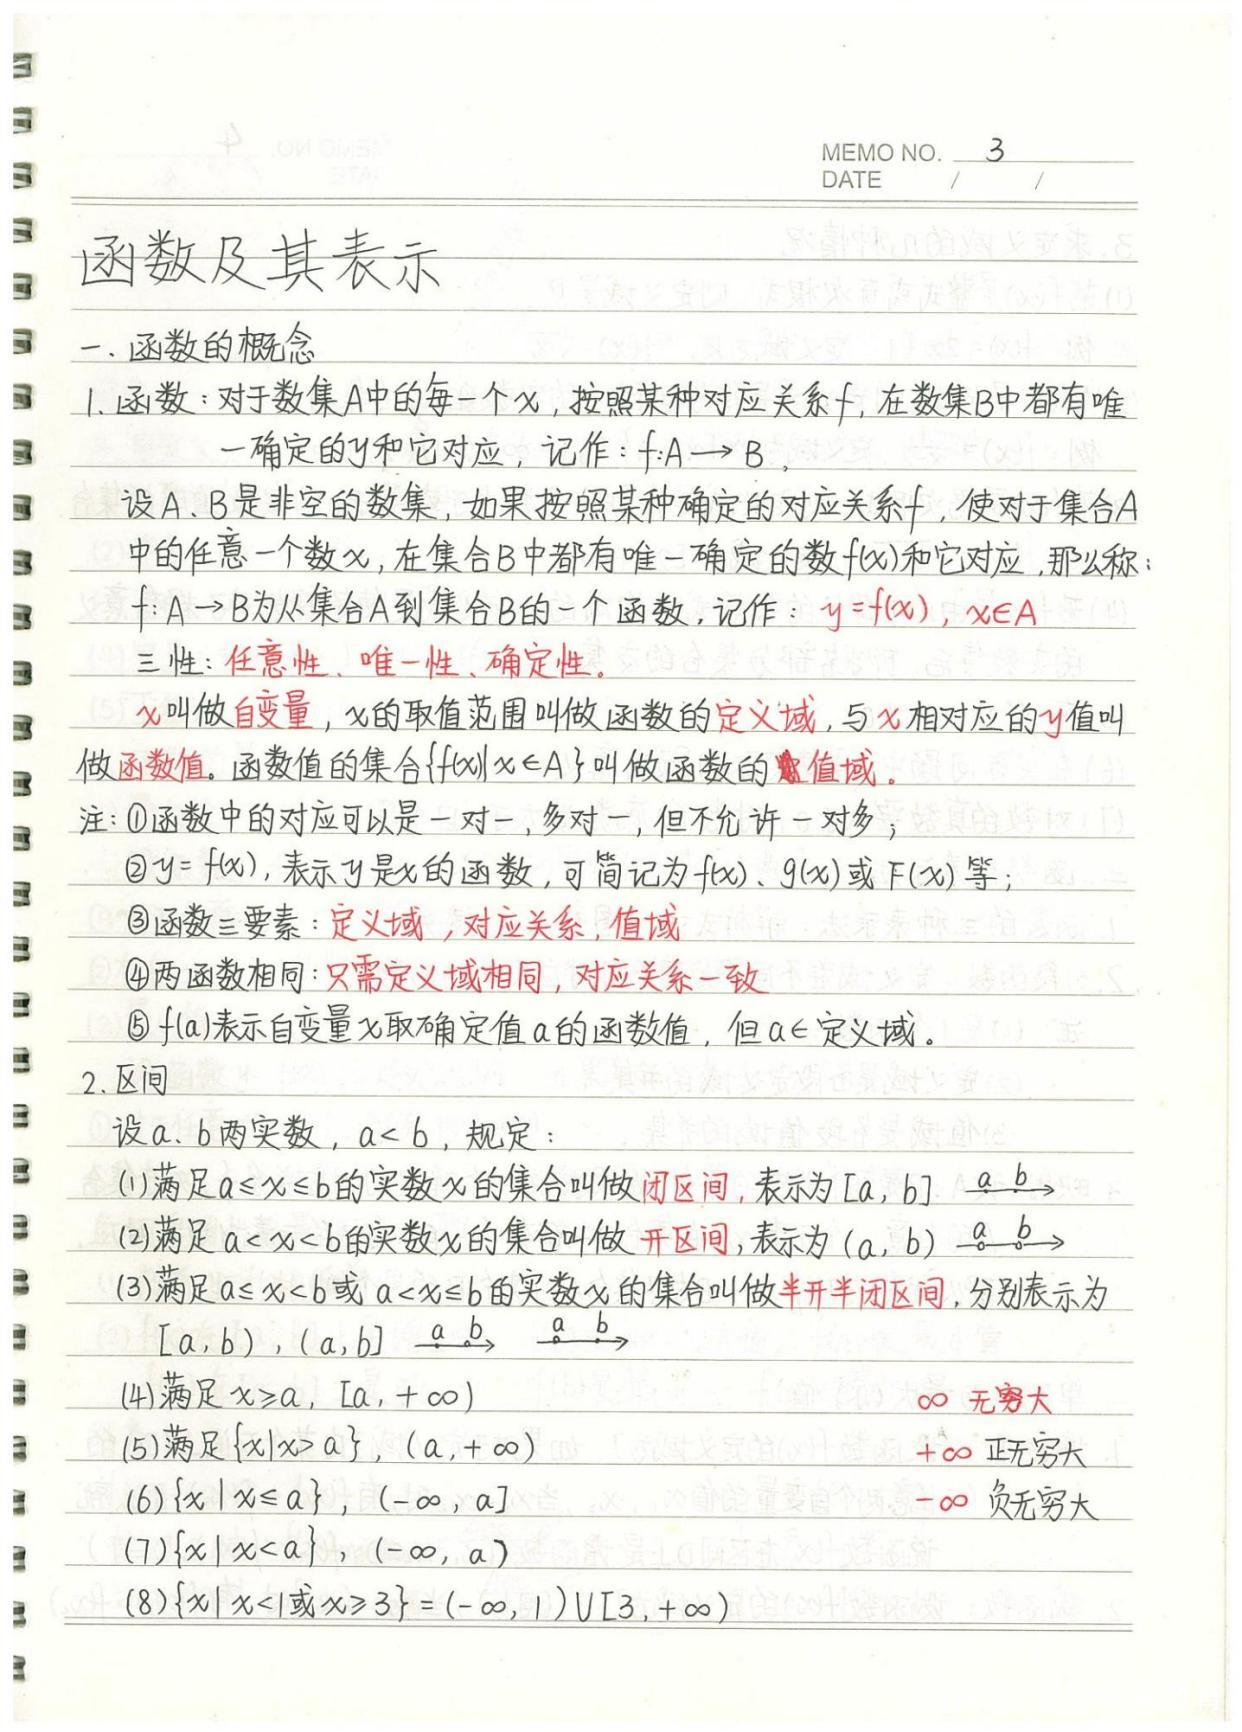 MEMO NO. 3
DATE / /
函数及其表示
一、函数的概念
1. 函数：对于数集A中的每一个x，按照某种对应关系f，在数集B中都有唯
一确定的y和它对应，记作：f:A→B。
设A、B是非空的数集，如果按照某种确定的对应关系f，使对于集合A
中的任意一个数x，在集合B中都有唯一确定的数f(x)和它对应，那么称：
f:A→B为从集合A到集合B的一个函数，记作：y=f(x)，x∈A
三性：任意性、唯一性、确定性。
x叫做自变量，x的取值范围叫做函数的定义域，与x相对应的y值叫
做函数值。函数值的集合{f(x)|x∈A}叫做函数的值域。
注：①函数中的对应可以是一对一，多对一，但不允许一对多；
②y=f(x)，表示y是x的函数，可简记为f(x)、g(x)或F(x)等；
③函数三要素：定义域，对应关系，值域
④两函数相同：只需定义域相同，对应关系一致
⑤f(a)表示自变量x取确定值a的函数值，但a∈定义域。
2. 区间
设a、b两实数，a<b，规定：
(1)满足a≤x≤b的实数x的集合叫做闭区间，表示为[a，b] a b
(2)满足a<x<b的实数x的集合叫做开区间，表示为(a，b) a b
(3)满足a≤x<b或a<x≤b的实数x的集合叫做半开半闭区间，分别表示为
[a，b)，(a，b] a b a b
(4)满足x≥a，[a，+∞) ∞ 无穷大
(5)满足{x|x>a}，(a，+∞) +∞ 正无穷大
(6){x|x≤a}，(-∞，a] -∞ 负无穷大
(7){x|x<a}，(-∞，a)
(8){x|x<1或x≥3}=(-∞，1)∪[3，+∞)